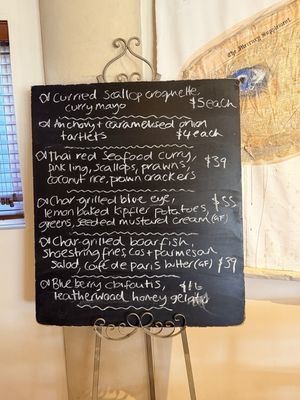 The Mercury Supplement
Curried Scallop croquette,
curry mayo $5 each
Anchovy + caramelised onion
tartlets $4 each
Thai red seafood curry,
pink ling, scallops, prawns, $39
coconut rice, prawn crackers
Char-grilled blue eye, $55
lemon baked kipfler potatoes,
greens, seeded mustard cream (GF)
Char-grilled boarfish,
shoestring fries, cos + parmesan
salad, café de paris butter (GF) $39
Blueberry clafoutis, $16
leatherwood honey gelato